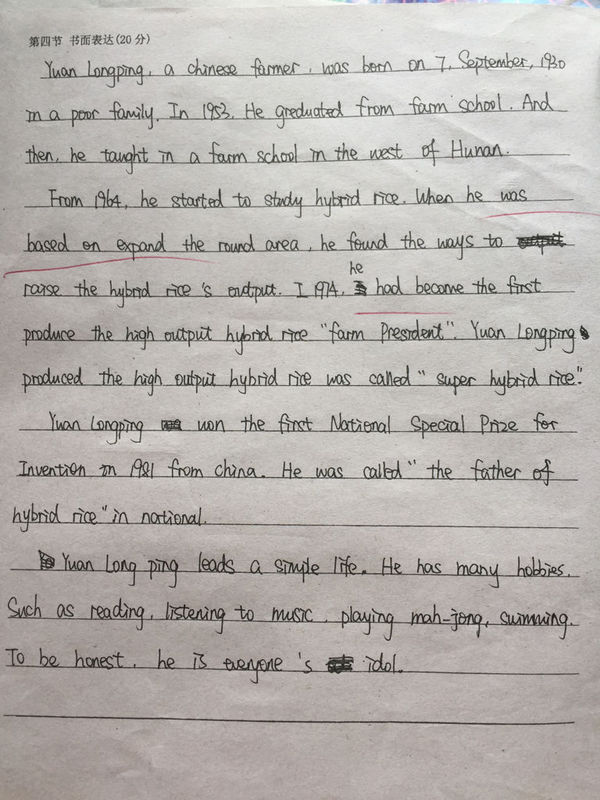 第四节 书面表达(20分)
Yuan Longping, a chinese farmer, was born on 7, September, 1930
in a poor family. In 1953, He graduated from farm school. And
then, he taught in a farm school in the west of Hunan.
From 1964, he started to study hybrid rice. When he was
based on expand the round area, he found the ways to
raise the hybrid rice's output. I 1974, he had become the first
produce the high output hybrid rice "farm President". Yuan Longping
produced the high output hybrid rice was called "super hybrid rice."
Yuan Longping won the first National Special Prize for
Invention in 1981 from china. He was called "the father of
hybrid rice" in national.
Yuan Long ping leads a simple life. He has many hobbies.
Such as reading, listening to music, playing mah-jong, swimming.
To be honest, he is everyone's idol.